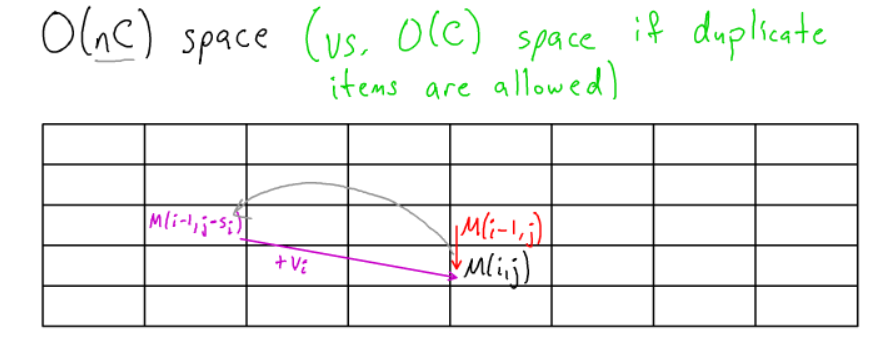 O(nC) space (vs. O(C) space if duplicate
items are allowed)
M(i-1,j-si) M(i-1,j)
+vi M(i,j)